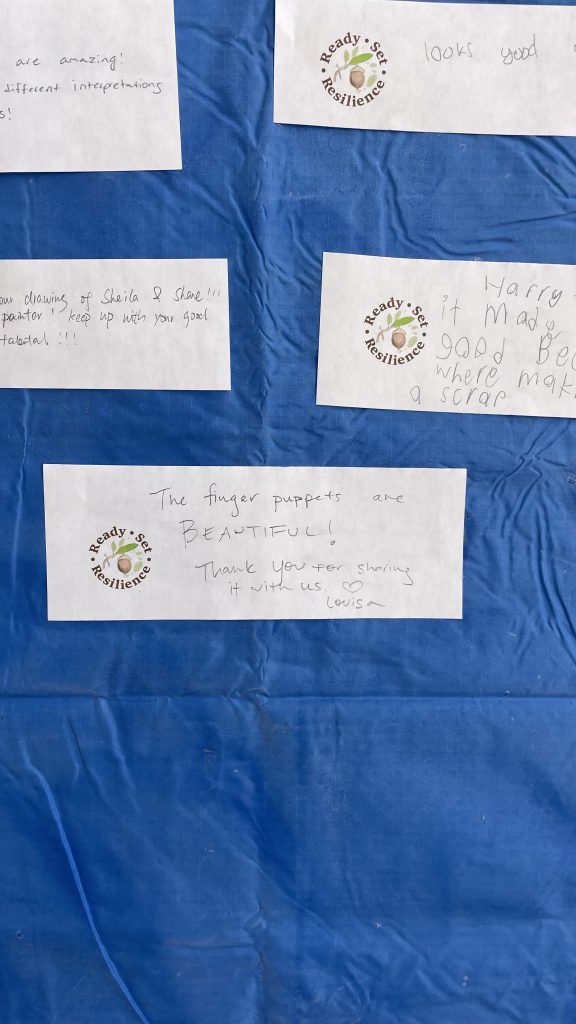 are amazing!
different interpretations
s!
Ready • Set
Resilience
looks good
our drawing of Sheila & Shane!!!
painter! keep up with your good
Habitat!!!
Ready • Set
Resilience
Harry
it mady
good Bec
where mak
a scrap.
Ready • Set
Resilience
The finger puppets are
BEAUTIFUL!
Thank you for sharing
it with us. ♡
Louisa